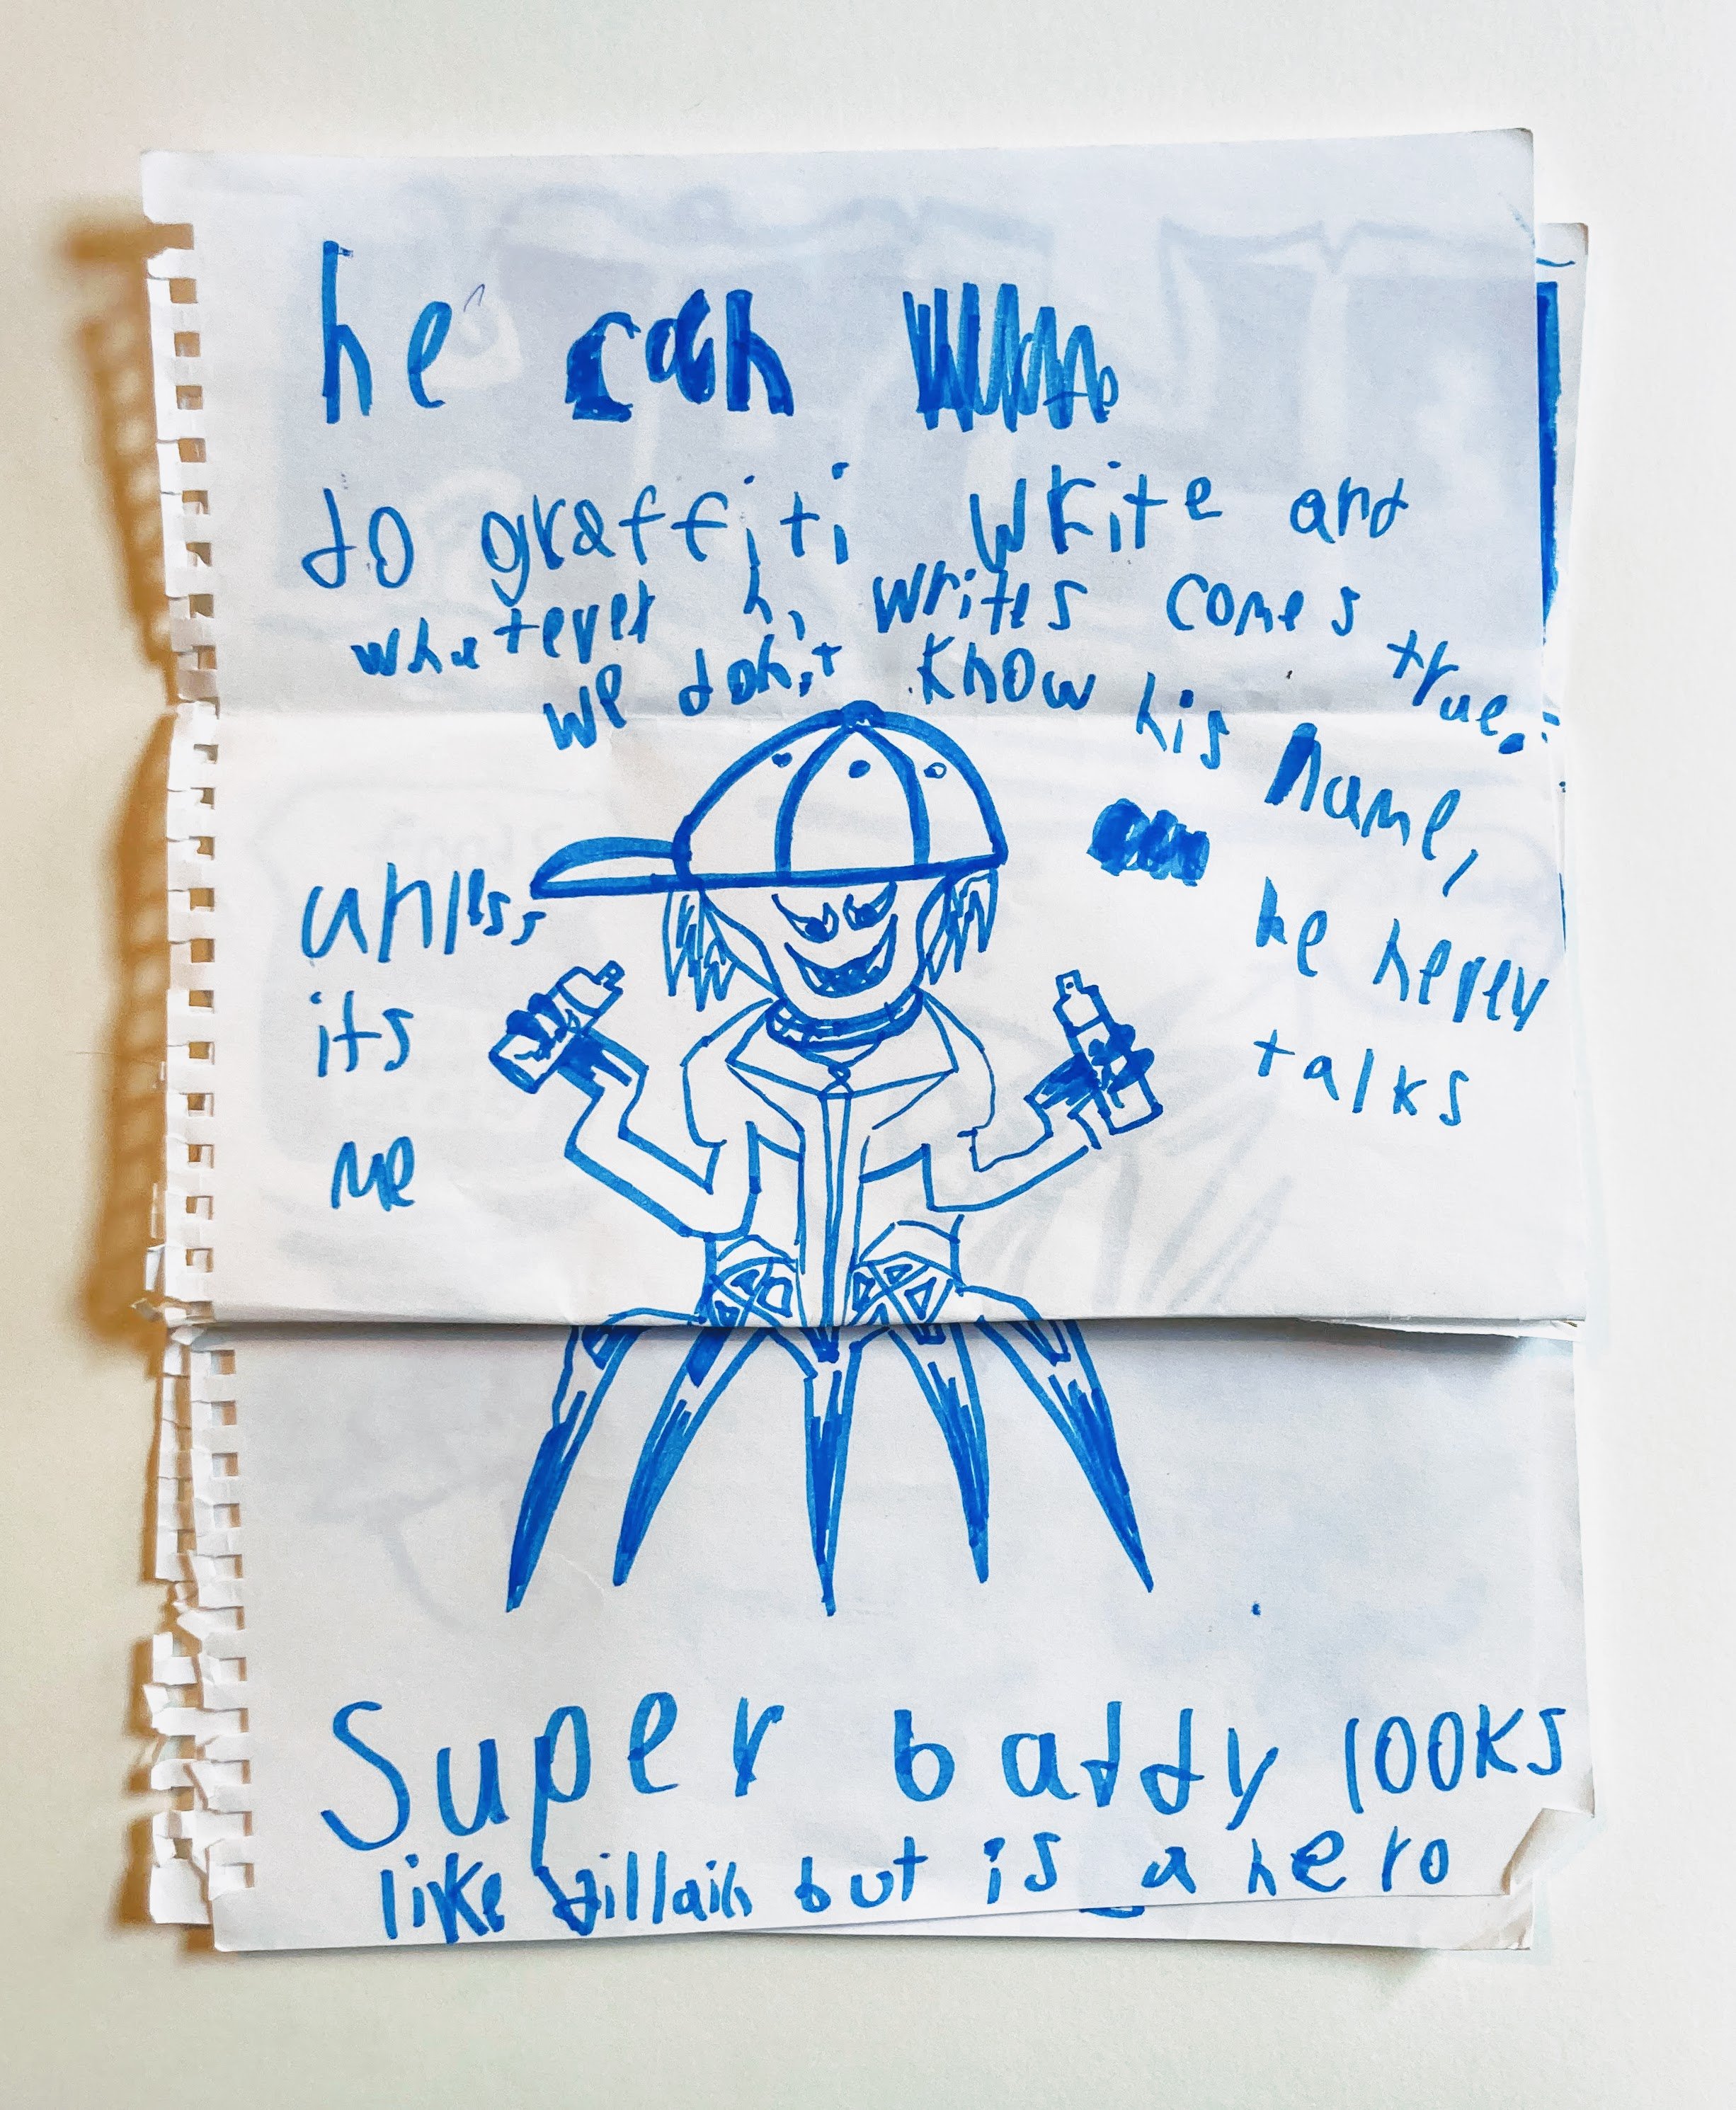 he can
do graffiti write and
whatever h, writes comes true.
we don't know his name,
he never
talks
unless,
its
me
Super baddy looks
like villain but is a hero